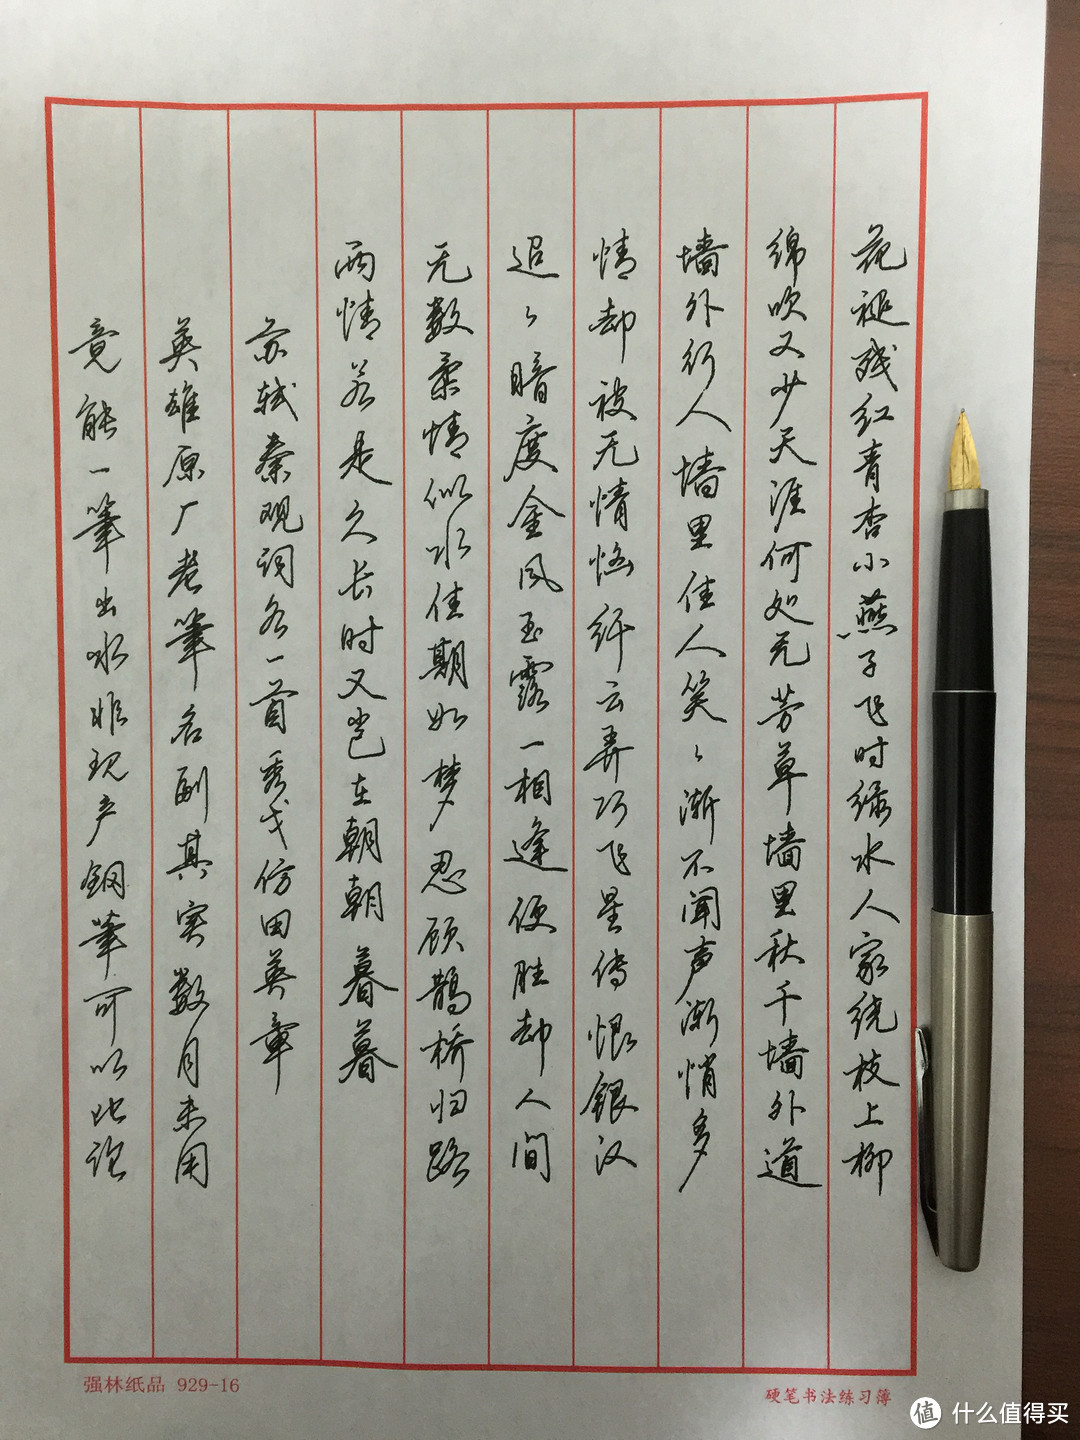 花褪残红青杏小燕子飞时绿水人家绕枝上柳
绵吹又少天涯何处无芳草墙里秋千墙外道
墙外行人墙里佳人笑々渐不闻声渐悄多
情却被无情恼纤云弄巧飞星传恨银汉
迢々暗度金风玉露一相逢便胜却人间
无数柔情似水佳期如梦忍顾鹊桥归路
两情若是久长时又岂在朝朝暮暮
苏轼秦观词各一首秀戈仿田英章
英雄原厂老筆名副其实数月未用
竟能一筆出水非现产钢筆可以比
强林纸品 929-16
硬笔书法练习簿
值 什么值得买